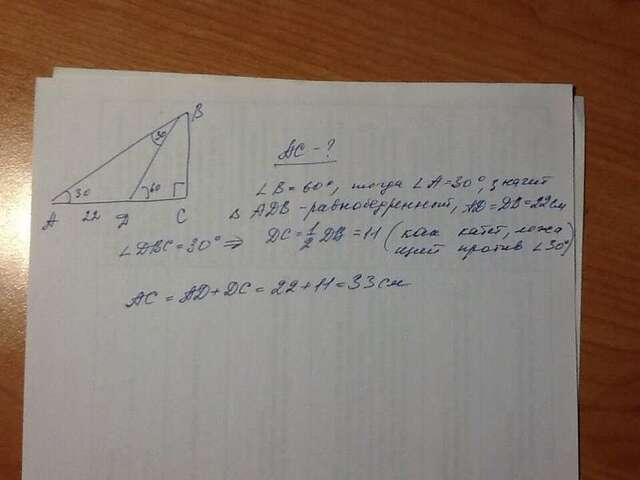 B
30
30
60
A 22 D C
AC - ?
∠B = 60°, тогда ∠A = 30°, значит
Δ ADB - равнобедренный, AD = DB = 22 см
∠DBC = 30° ⇒ DC = 1/2 DB = 11 (как катет, лежа
щий против ∠30°)
AC = AD + DC = 22 + 11 = 33 см